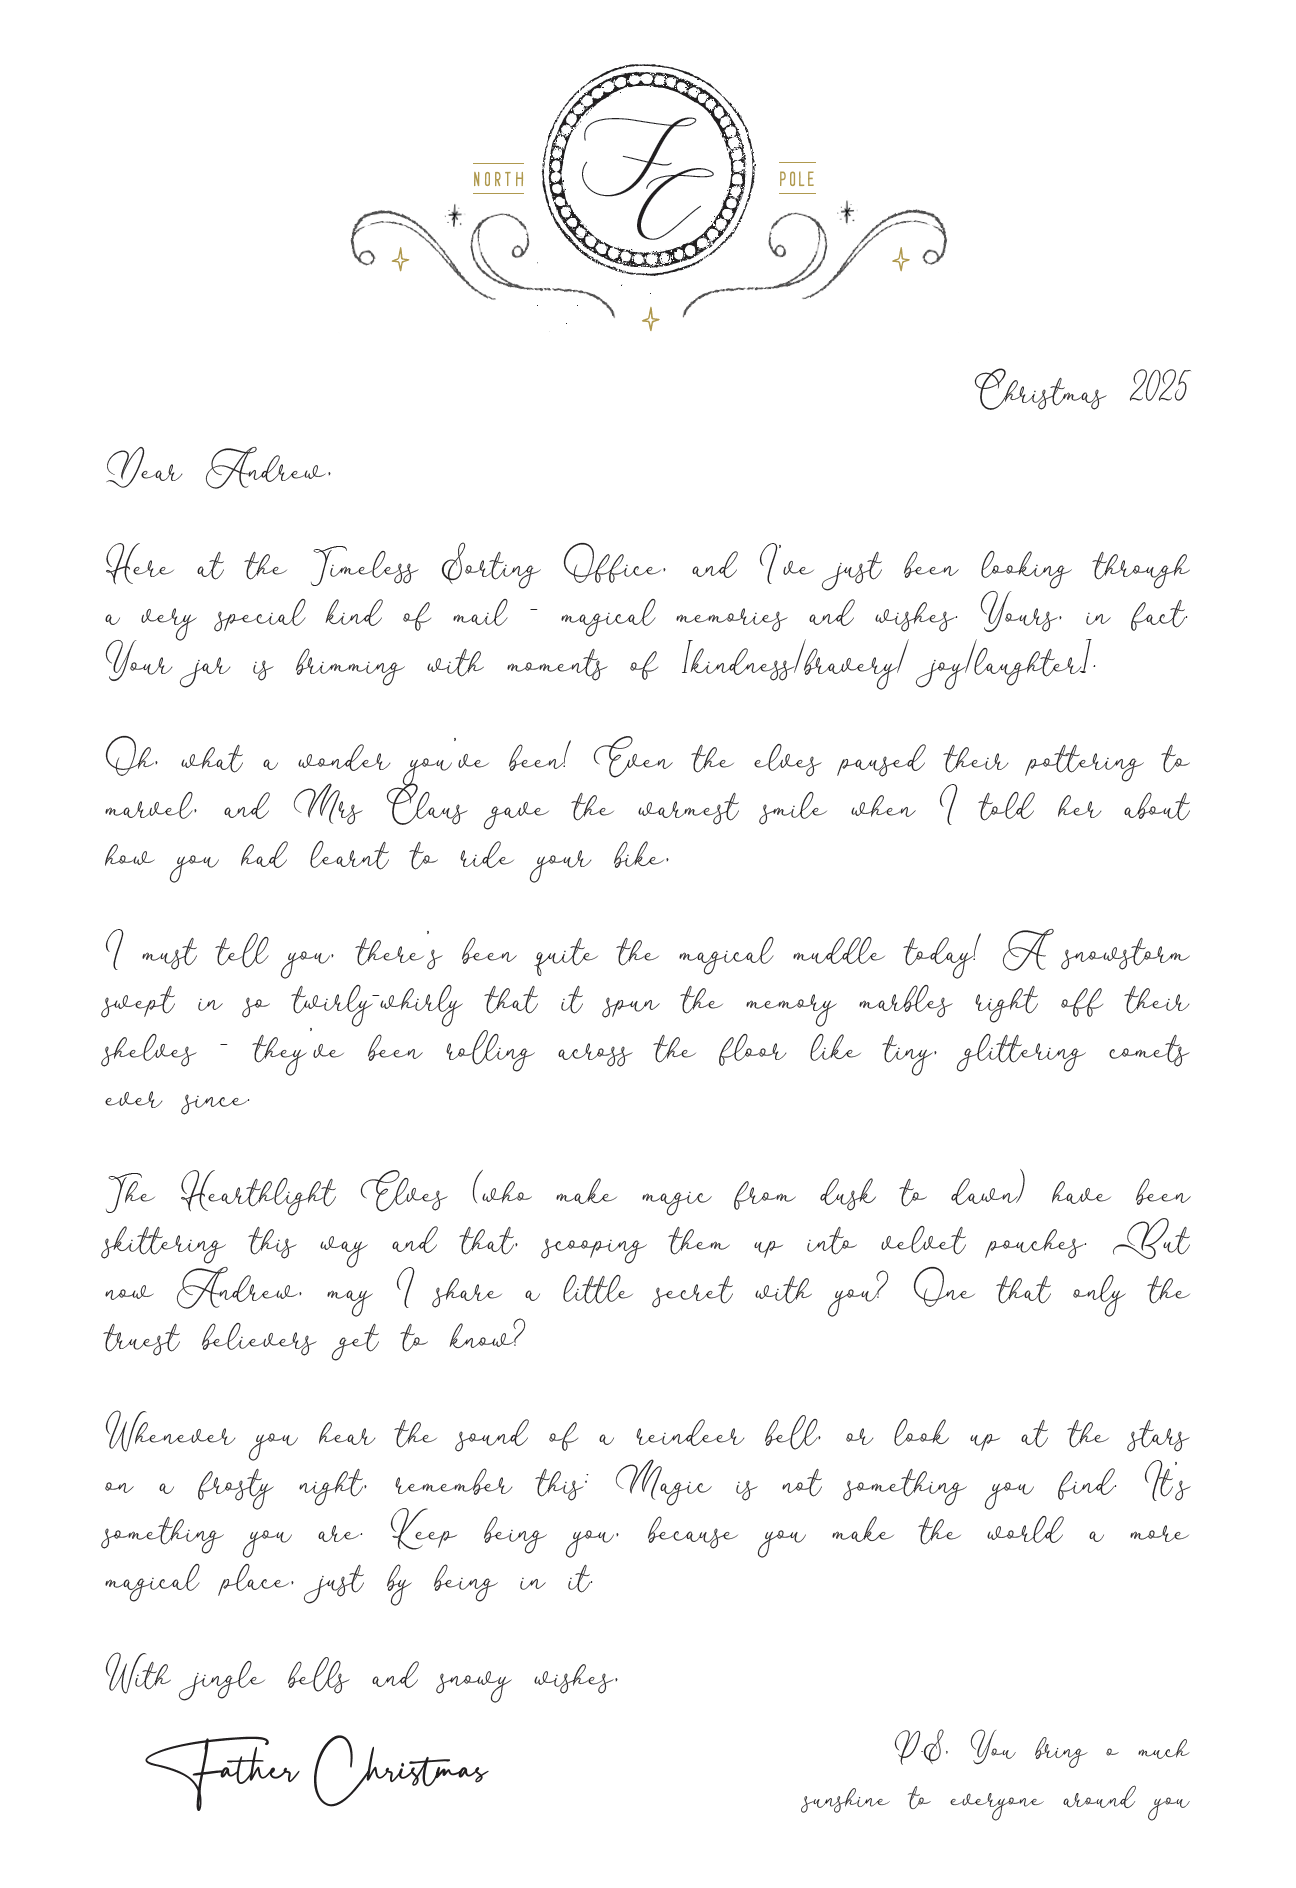 FC
NORTH POLE
Christmas 2025
Dear Andrew,
Here at the Timeless Sorting Office, and I've just been looking through
a very special kind of mail - magical memories and wishes. Yours, in fact.
Your jar is brimming with moments of [kindness/bravery/ joy/laughter].
Oh, what a wonder you've been! Even the elves paused their pottering to
marvel, and Mrs Claus gave the warmest smile when I told her about
how you had learnt to ride your bike.
I must tell you, there's been quite the magical muddle today! A snowstorm
swept in so twirly-whirly that it spun the memory marbles right off their
shelves - they've been rolling across the floor like tiny, glittering comets
ever since.
The Hearthlight Elves (who make magic from dusk to dawn) have been
skittering this way and that, scooping them up into velvet pouches. But
now Andrew, may I share a little secret with you? One that only the
truest believers get to know?
Whenever you hear the sound of a reindeer bell, or look up at the stars
on a frosty night, remember this: Magic is not something you find. It's
something you are. Keep being you, because you make the world a more
magical place, just by being in it.
With jingle bells and snowy wishes,
Father Christmas
P.S. You bring o much
sunshine to everyone around you